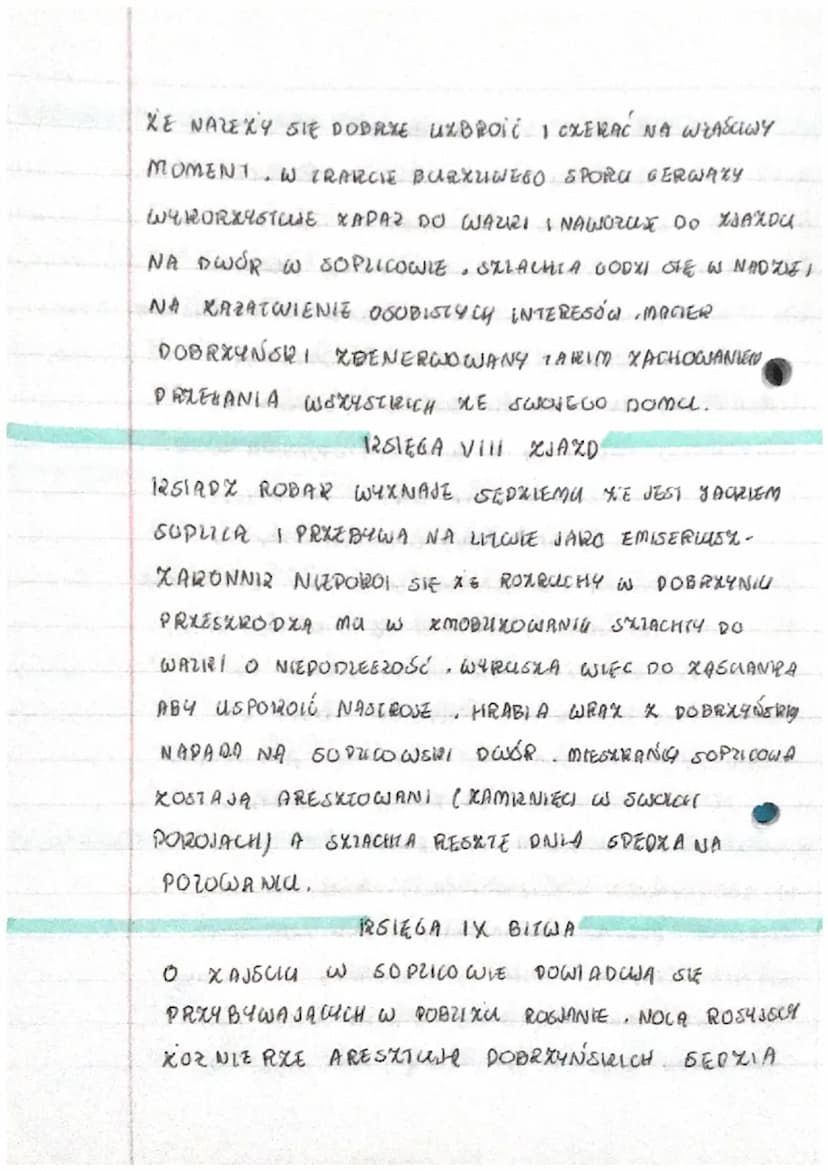 ŻE NALEŻY SIĘ DOBRZE UZBROIĆ I CZEKAĆ NA WŁAŚCIWY
MOMENT. W TRAKCIE BURZLIWEGO SPORU GERWAZY
WYKORZYSTUJE ZAPAŁ DO WALKI I NAWOŁUJE DO ZJAZDU
NA DWÓR W SOPLICOWIE. SZLACHTA GODZI SIĘ W NADZIEI
NA ZAŁATWIENIE OSOBISTYCH INTERESÓW. MACIEK
DOBRZYŃSKI ZDENERWOWANY TAKIM ZACHOWANIEM
PRZEGANIA WSZYSTKICH ZE SWOJEGO DOMU.
KSIĘGA VIII ZJAZD
KSIĄDZ ROBAK WYZNAJE SĘDZIEMU ŻE JEST JACKIEM
SOPLICĄ I PRZEBYWA NA LITWIE JAKO EMISERIUSZ-
ZAKONNIK NIEPOKOI SIĘ ŻE ROZRUCHY W DOBRZYNIU
PRZESZKODZĄ MU W ZMOBILIZOWANIU SZLACHTY DO
WALKI O NIEPODLEGŁOŚĆ. WYRUSZA WIĘC DO ZAŚCIANKA
ABY USPOKOIĆ NASTROJE. HRABIA WRAZ Z DOBRZYŃSKIMI
NAPADA NA SOPLICOWSKI DWÓR. MIESZKAŃCY SOPLICOWA
ZOSTAJĄ ARESZTOWANI (ZAMKNIĘCI W SWOICH
POKOJACH) A SZLACHTA RESZTĘ DNIA SPĘDZA NA
POLOWANIU.
KSIĘGA IX BITWA
O ZAJŚCIU W SOPLICOWIE DOWIADUJĄ SIĘ
PRZYBYWAJĄCYCH W POBLIŻU ROSJANIE. NOCĄ ROSYJSCY
ŻOŁNIERZE ARESZTUJĄ DOBRZYŃSKICH. SĘDZIA